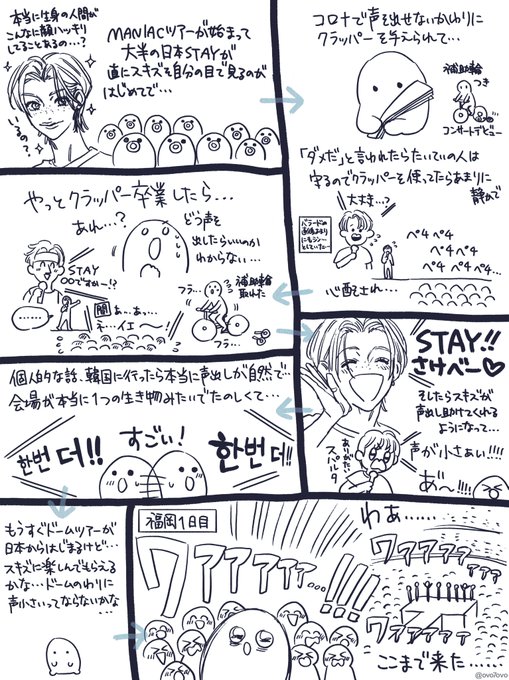 本当に生身の人間が
こんなに顔ハッキリ
してることあるの…?
いるの…?
MANIACツアーが始まって
大半の日本STAYが
直にスキズを自分の目で見るのが
はじめてで…
コロナで声を出せないかわりに
クラッパーを与えられて…
補助輪
つき
コンサートデビュー
「ダメだ」と言われたらたいていの人は
守るのでクラッパーを使ってたらあまりに
静かで
大丈夫…?
ペチペチ
ペチペチ
ペチペチ
ペチ ペチ…
心配され…
やっとクラッパー卒業したら…
あれ…?
どう声を
出したらいいのか
わからない…
STAY
○○ですかー!?
……
間
あ…あ…
ネ…イェ〜!
補助輪
取れた
フラ…
フラ…
STAY!!
さけべー♡
そしたらスキズが
声出し助けてくれる
ようになって…
声が小さぁい!!!!
ありがたい
スパルタ
あ゛〜!!!!
個人的な話、韓国に行ったら本当に声出しが自然で…
会場が本当に1つの生き物みたいでたのしくて…
한번 더!!
すごい!
한번 더!!
もうすぐドームツアーが
日本からはじまるけど…
スキズに楽しんでもらえる
かな…ドームのわりに
声小さいってならないかな
…
福岡1日目
ワァァァァァ…!!!!
わぁ……
ワァァァァ
ァァァ
ワァァァァァ
ここまで来た……
@ovo7ovo